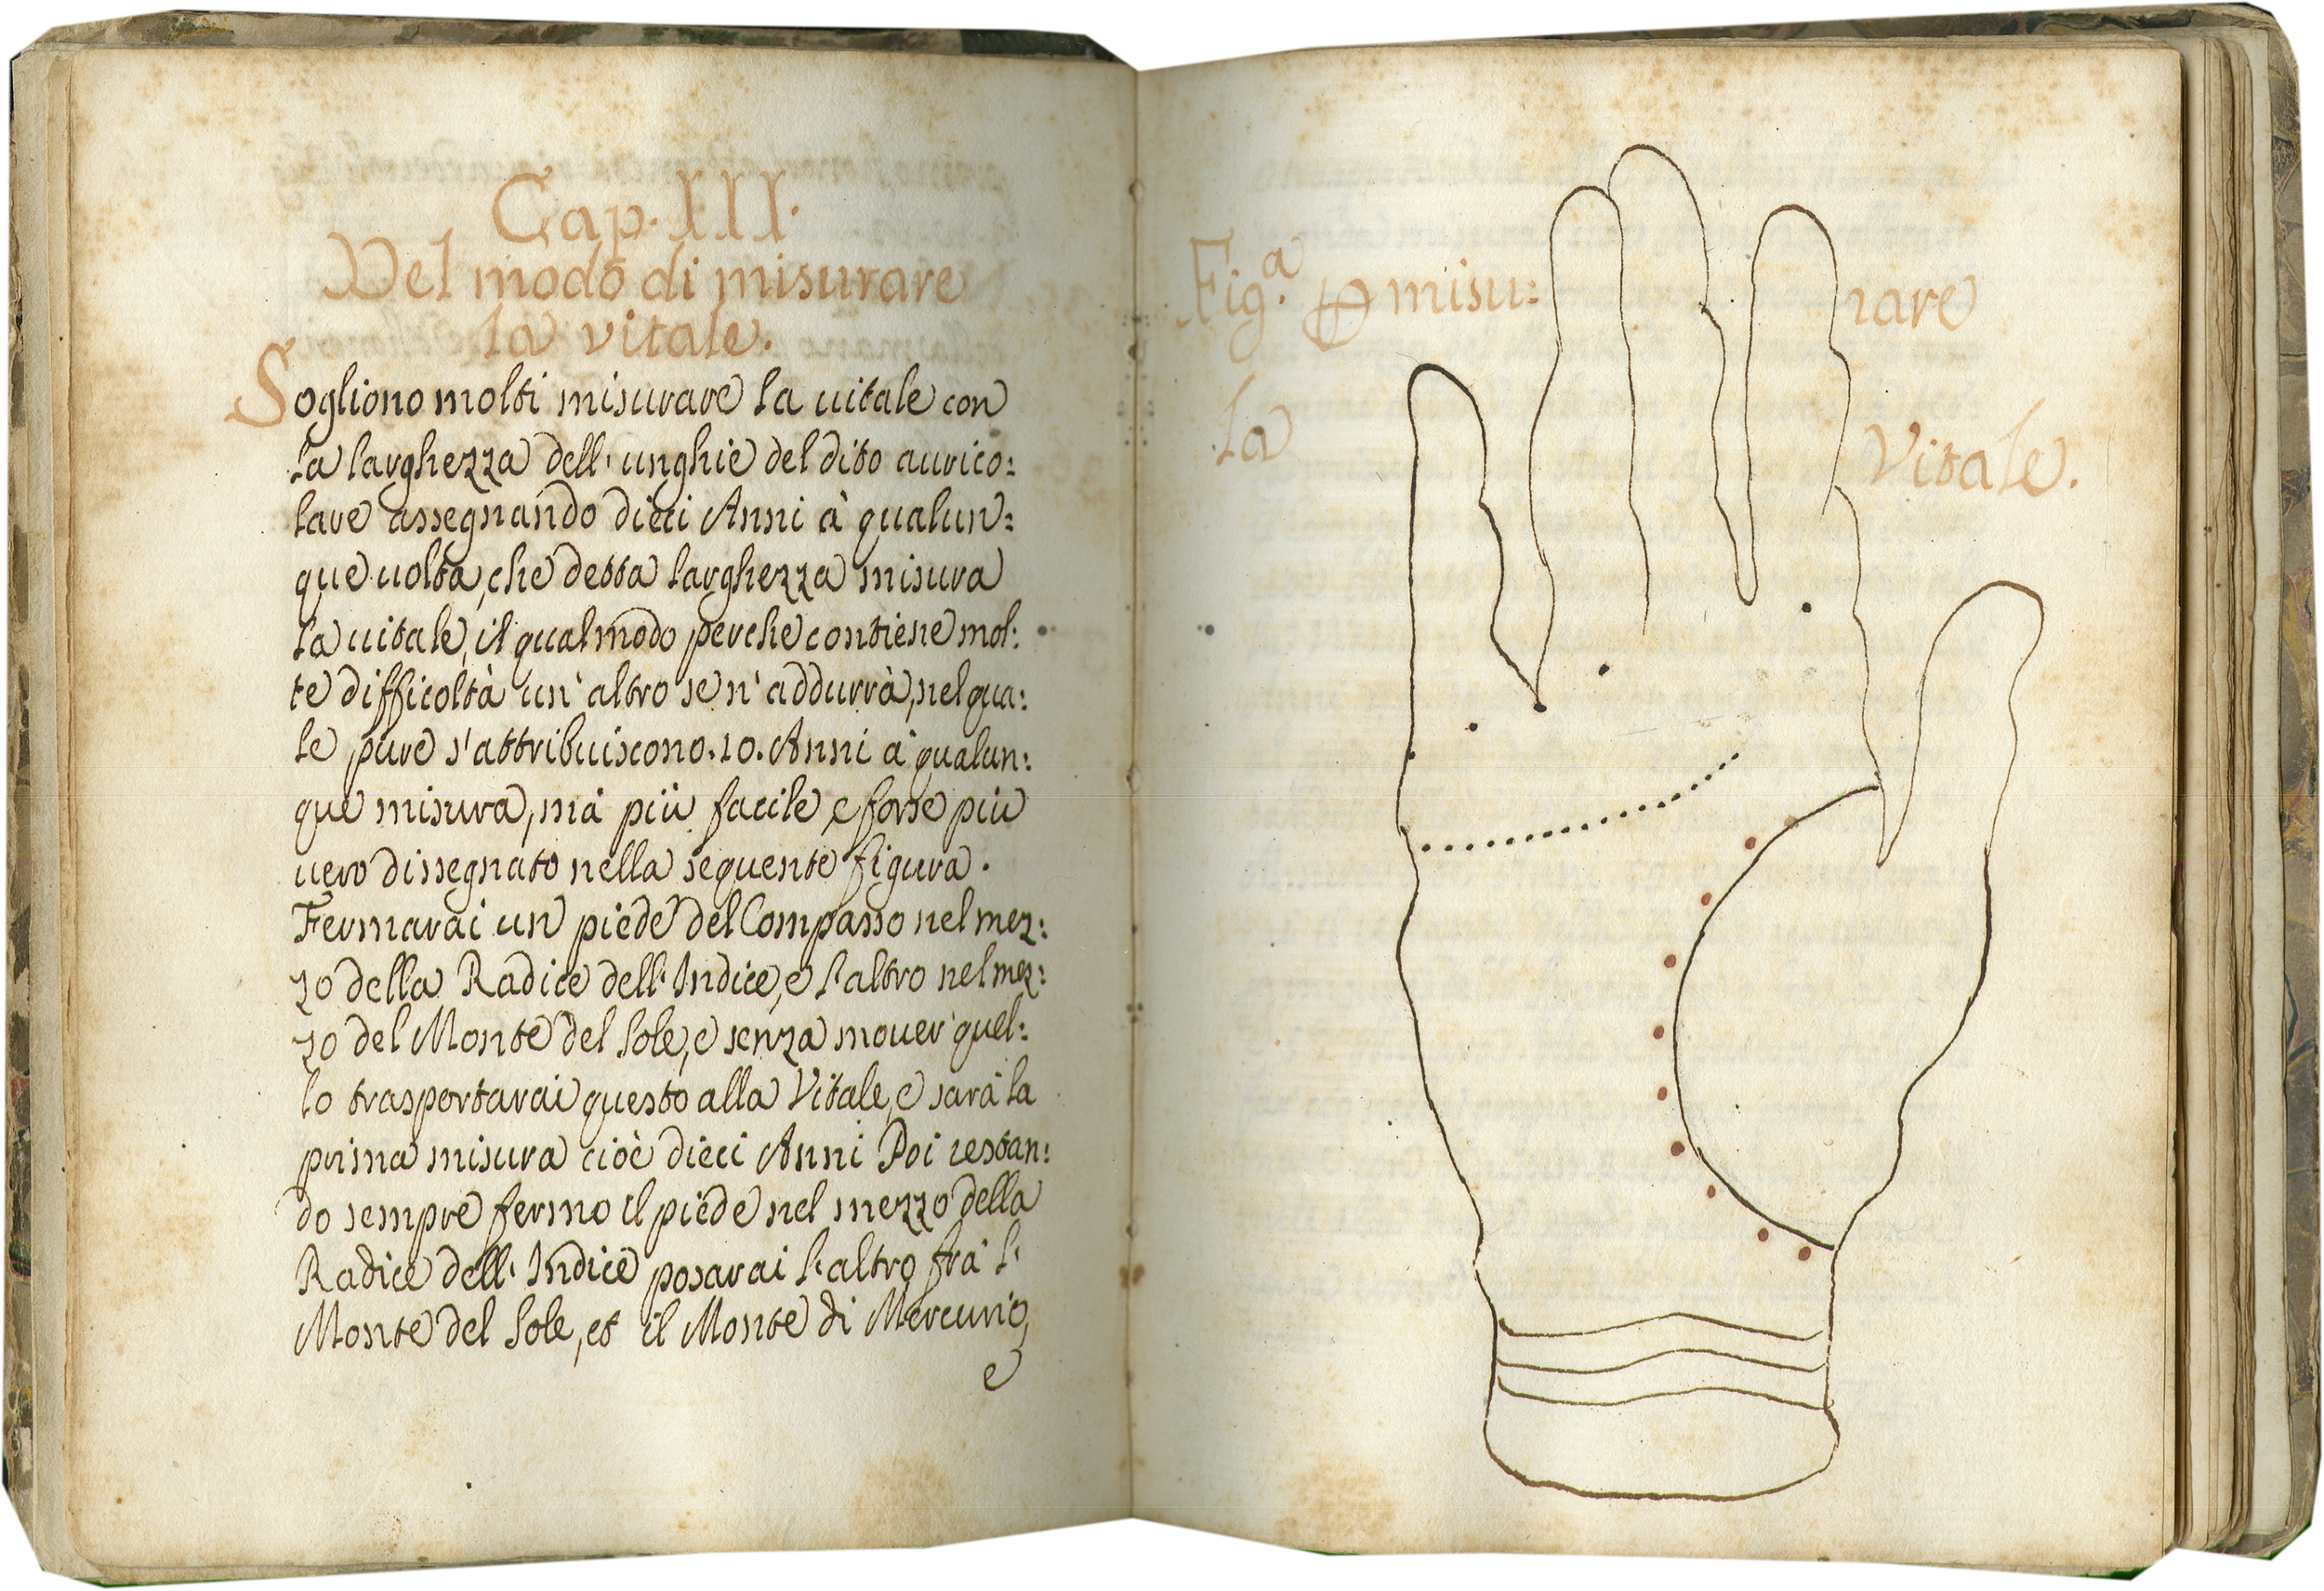 Cap. III.
Del modo di misurare
la vitale.
Sogliono molti misurare la uitale con
la larghezza dell' unghie del dito aurico:
lare assegnando dieci Anni à qualun:
que uolta, che detta larghezza misura
la uitale, il qual modo perche contiene mol:
te difficoltà un' altro se n' addurrà, nel qua:
le pure s'attribuiscono .10. Anni à qualun:
que misura, mà più facile, e forse più
uero dissegnato nella seguente figura.
Fermarai un piede del Compasso nel mez:
zo della Radice dell' Indice, e l'altro nel mez:
zo del Monte del Sole, e senza mouer quel:
lo trasportarai questo alla Vitale, e sarà la
prima misura cioè dieci Anni Poi restan:
do sempre fermo il piede nel mezzo della
Radice dell' Indice posarai l'altro frà l'
Monte del Sole, et il Monte di Mercurio,
e
Fig.ª ꝑ misu: rare
la Vitale.